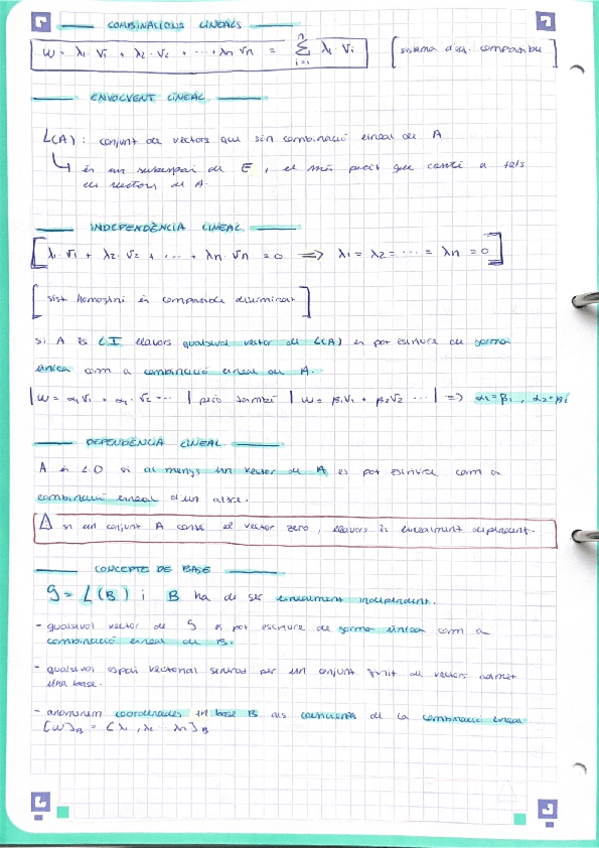 COMBINACIONS LINEALS
w = λ1·v1 + λ2·v2 + ··· + λn vn = Σ i=1 n λi·vi [sistema d'eq. compatible]
ENVOLVENT LINEAL
L(A): conjunt de vectors que són combinació lineal de A
↳ és un subespai de E, el més petit que conté a tots
els vectors de A.
INDEPENDÈNCIA LINEAL
[λ1·v1 + λ2·v2 + ··· + λn·vn = 0 ⟹ λ1 = λ2 = ··· = λn = 0]
[sist homogeni és compatible determinat]
si A és LI llavors qualsevol vector de L(A) es pot escriure de forma
única com a combinació lineal de A.
|w = α1v1 + α2·v2 ··· | però també | w = β1v1 + β2v2 ··· | => α1=β1, α2=βi
DEPENDÈNCIA LINEAL
A és LD si al menys un vector de A es pot escriure com a
combinació lineal d'un altre.
⚠ si un conjunt A conté el vector zero, llavors és linealment dependent.
CONCEPTE DE BASE
S = L(B) i B ha de ser linealment independent.
- qualsevol vector de S es pot escriure de forma única com a
combinació lineal de B.
- qualsevol espai vectorial generat per un conjunt finit de vectors admet
una base.
- anomenem coordenades en base B als coeficients de la combinació lineal
[w]B = (λ1, λ2 ··· λn)B